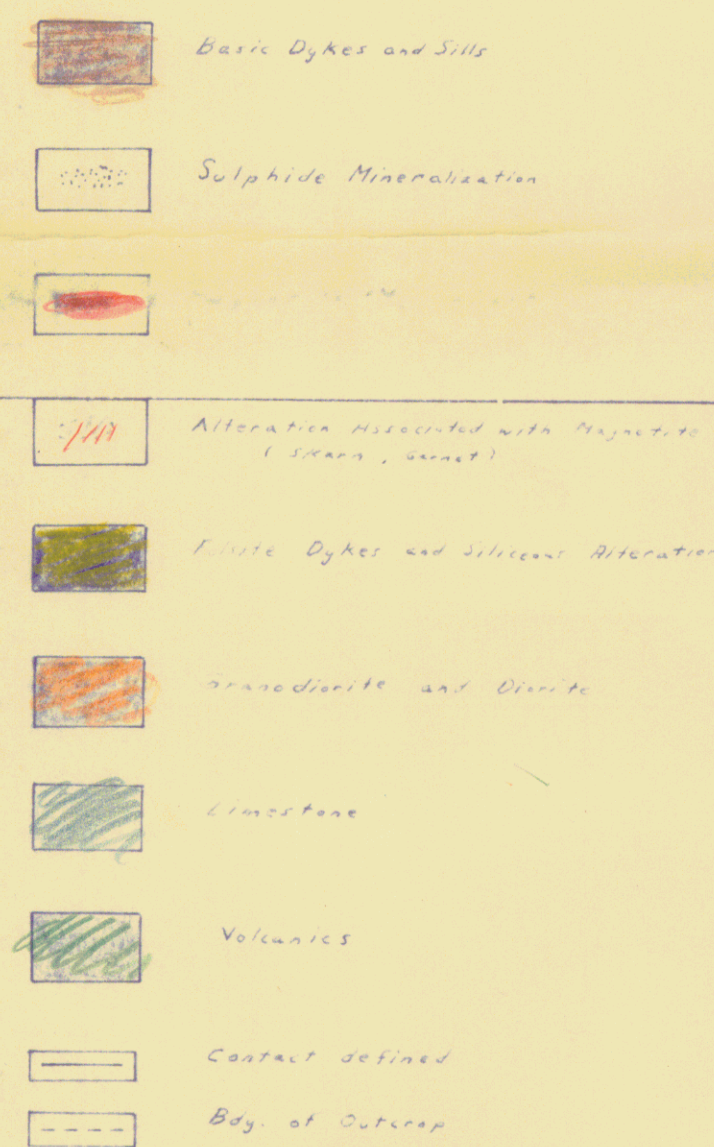 Basic Dykes and Sills
Sulphide Mineralization
Alteration Associated with Magnetite
( Skarn , Garnet )
Felsite Dykes and Siliceous Alteration
Granodiorite and Diorite
Limestone
Volcanics
Contact defined
Bdy. of Outcrop